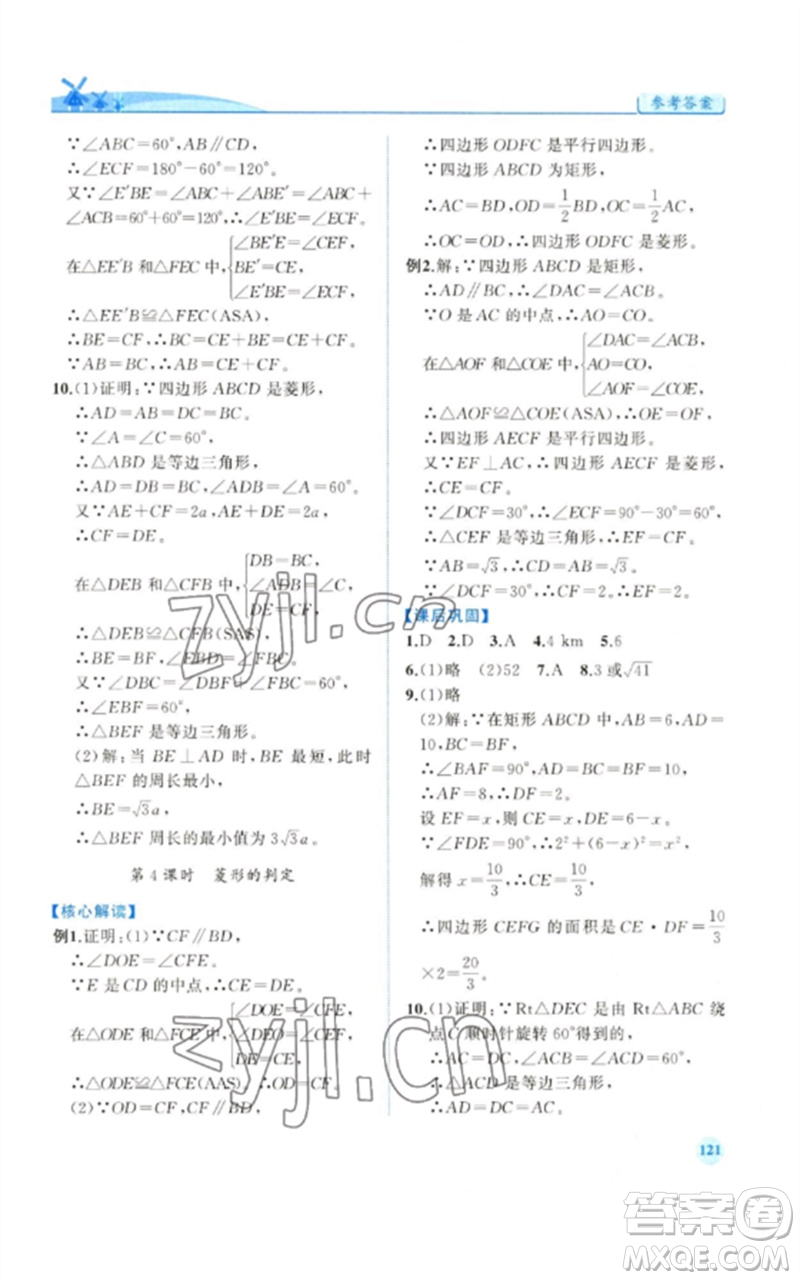 参考答案
∵∠ABC=60°,AB∥CD,
∴∠ECF=180°-60°=120°.
又∵∠E′BE=∠ABC+∠ABE′=∠ABC+
∠ACB=60°+60°=120°,∴∠E′BE=∠ECF.
在△EE′B和△FEC中,{∠BE′E=∠CEF,
BE′=CE,
∠E′BE=∠ECF,
∴△EE′B≌△FEC(ASA),
∴BE=CF,∴BC=CE+BE=CE+CF.
∵AB=BC,∴AB=CE+CF.
10.(1)证明:∵四边形ABCD是菱形,
∴AD=AB=DC=BC.
∵∠A=∠C=60°,
∴△ABD是等边三角形,
∴AD=DB=BC,∠ADB=∠A=60°.
又∵AE+CF=2a,AE+DE=2a,
∴CF=DE.
在△DEB和△CFB中,{DB=BC,
∠ADB=∠C,
DE=CF,
∴△DEB≌△CFB(SAS),
∴BE=BF,∠EBD=∠CBF.
又∵∠DBC=∠DBF+∠CBF=60°,
∴∠EBF=60°,
∴△BEF是等边三角形.
(2)解:当BE⊥AD时,BE最短,此时
△BEF的周长最小,
∴BE=√3a,
∴△BEF周长的最小值为3√3a.
第4课时 菱形的判定
【核心解读】
例1.证明:(1)∵CF∥BD,
∴∠DOE=∠CFE.
∵E是CD的中点,∴CE=DE.
在△ODE和△FCE中,{∠DOE=∠CFE,
∠DEO=∠CEF,
DE=CE,
∴△ODE≌△FCE(AAS).
(2)∵OD=CF,CF∥BD,
∴四边形ODFC是平行四边形.
∵四边形ABCD为矩形,
∴AC=BD,OD=1/2BD,OC=1/2AC,
∴OC=OD,∴四边形ODFC是菱形.
例2.解:∵四边形ABCD是矩形,
∴AD∥BC,∴∠DAC=∠ACB.
∵O是AC的中点,∴AO=CO.
在△AOF和△COE中,{∠DAC=∠ACB,
AO=CO,
∠AOF=∠COE,
∴△AOF≌△COE(ASA),∴OE=OF,
∴四边形AECF是平行四边形.
又∵EF⊥AC,∴四边形AECF是菱形,
∴CE=CF.
∵∠DCF=30°,∴∠ECF=90°-30°=60°,
∴△CEF是等边三角形,∴EF=CF.
∵AB=√3,∴CD=AB=√3.
∵∠DCF=30°,∴CF=2,∴EF=2.
【课后巩固】
1.D 2.D 3.A 4.4 km 5.6
6.(1)略 (2)52 7.A 8.3或√41
9.(1)略
(2)解:∵在矩形ABCD中,AB=6,AD=
10,BC=BF,
∴∠BAF=90°,AD=BC=BF=10,
∴AF=8,∴DF=2.
设EF=x,则CE=x,DE=6-x.
∵∠FDE=90°,∴2²+(6-x)²=x²,
解得x=10/3,∴CE=10/3,
∴四边形CEFG的面积是CE·DF=10/3
×2=20/3.
10.(1)证明:∵Rt△DEC是由Rt△ABC绕
点C顺时针旋转60°得到的,
∴AC=DC,∠ACB=∠ACD=60°,
∴△ACD是等边三角形,
∴AD=DC=AC.
121
zyjl.cn
zyjl.cn
答案卷
MXQE.COM